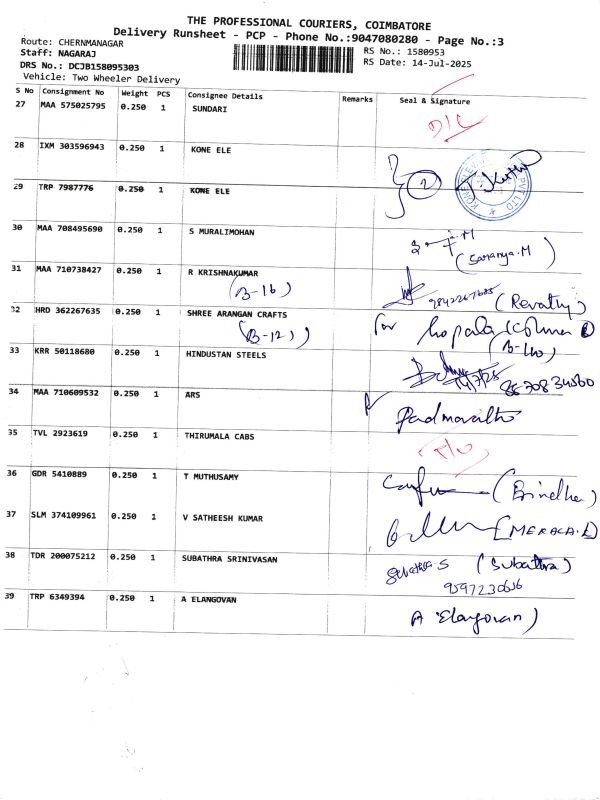 THE PROFESSIONAL COURIERS, COIMBATORE
Delivery Runsheet - PCP - Phone No.:9047080280 - Page No.:3
Route: CHERNMANAGAR
RS No.: 1580953
Staff: NAGARAJ
RS Date: 14-Jul-2025
DRS No.: DCJB158095303
Vehicle: Two Wheeler Delivery
S No Consignment No Weight PCS Consignee Details Remarks Seal & Signature
27 MAA 575025795 0.250 1 SUNDARI D/C
28 IXM 303596943 0.250 1 KONE ELE
29 TRP 7987776 0.250 1 KONE ELE 2
30 MAA 708495690 0.250 1 S MURALIMOHAN
(Saranya.M)
31 MAA 710738427 0.250 1 R KRISHNAKUMAR
(B-16) (Revathy)
32 HRD 362267635 0.250 1 SHREE ARANGAN CRAFTS for
(B-12)
33 KRR 50118680 0.250 1 HINDUSTAN STEELS
34 MAA 710609532 0.250 1 ARS
35 TVL 2923619 0.250 1 THIRUMALA CABS
36 GDR 5410889 0.250 1 T MUTHUSAMY (Brindha)
37 SLM 374109961 0.250 1 V SATHEESH KUMAR
38 TDR 200075212 0.250 1 SUBATHRA SRINIVASAN Subathra S (Subathra)
39 TRP 6349394 0.250 1 A ELANGOVAN
A Elangovan)